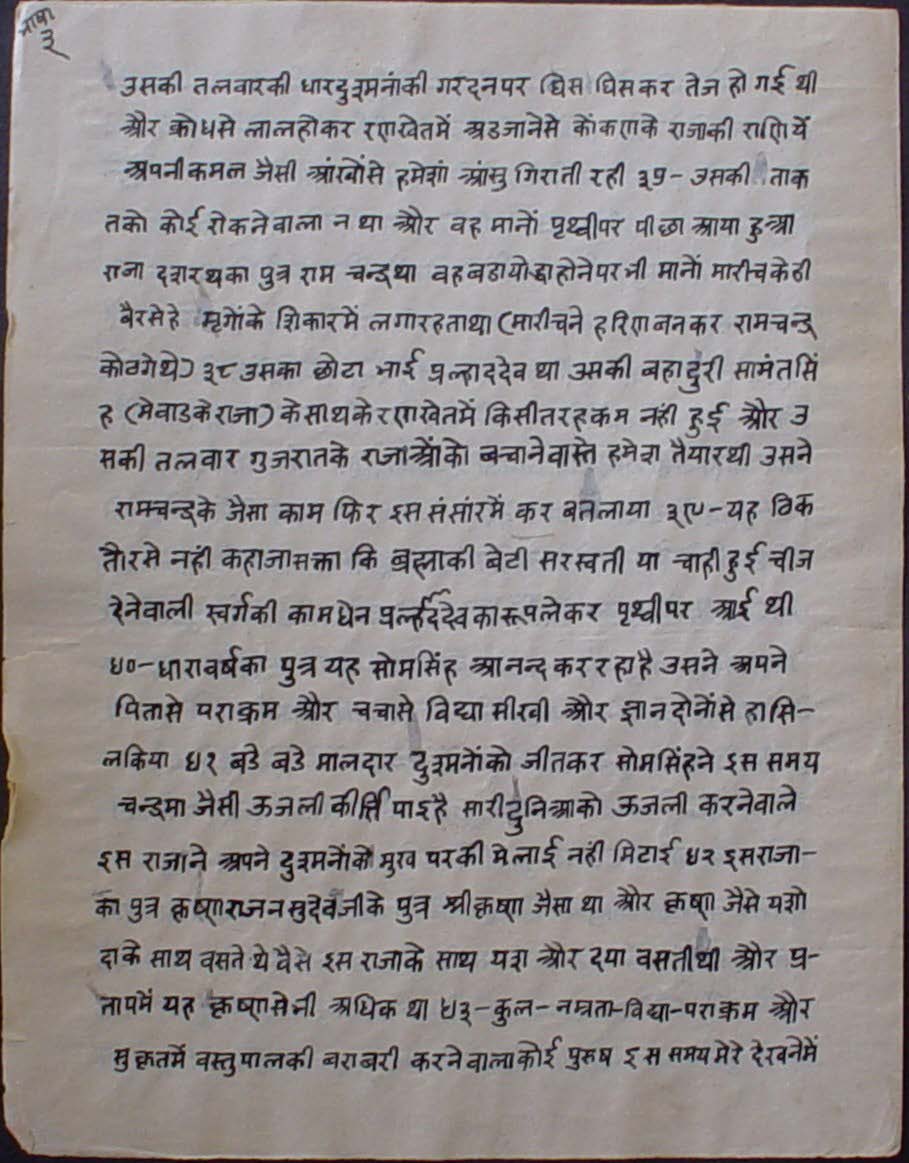 भाषा
३
उसकी तलवारकी धारदुश्मनांकी गरदनपर घिस घिसकर तेज हो गई थी
और क्रोधसे लालहोकर रणखेतमें अडजानेसे कोंकणके राजाकी राणियें
अपनीकमल जैसी आंखोंसे हमेशां आंसु गिराती रही ३७- उसकी ताक
तको कोई रोकनेवाला न था और वह मानों पृथ्वीपर पीछा आया हुआ
राजा दशरथका पुत्र राम चन्द्रथा वहबडायोद्धाहोनेपरभी मानों मारीचकेही
बैरसेहे मृगोंके शिकारमें लगारहताथा (मारीचने हरिणबनकर रामचन्द्र
कोठगेथे) ३८ उसका छोटा भाई प्रल्हाददेव था उसकी बहादुरी सामंतसिं
ह (मेवाडकेराजा) केसाथकेरणखेतमें किसीतरहकम नहीं हुई और उ
सकी तलवार गुजरातके राजाओंको बचानेवास्ते हमेश तैयारथी उसने
रामचन्द्रके जैसा काम फिर इस संसारमें कर बतलाया ३९-यह ठिक
तौरसे नही कहाजासक्ता कि ब्रह्माकी बेटी सरस्वती या चाही हुई चीज
देनेवाली स्वर्गकी कामधेन प्रल्हाददेवकारूपलेकर पृथ्वीपर आई थी
४०-धारावर्षका पुत्र यह सोमसिंह आनन्द कर रहा है उसने अपने
पितासे पराक्रम और चचासे विद्या सीखी और ज्ञान दोनोंसे हासि-
लकिया ४१ बडे बडे मालदार दुश्मनोंको जीतकर सोमसिंहने इस समय
चन्द्रमा जैसी ऊजली कीर्त्ति पाइहै सारीदुनिआको ऊजली करनेवाले
इस राजाने अपने दुश्मनोंके मुख परकी मेलाई नहीं मिटाई ४२ इसराजा-
का पुत्र कृष्णराजवसुदेवजीके पुत्र श्रीकृष्ण जैसा था और कृष्ण जैसे यशो
दाके साथ वसते थे वैसे इस राजाके साथ यश और दया वसतीथी और प्र-
तापमें यह कृष्णसेभी अधिक था ४३-कुल-नम्रता-विद्या-पराक्रम और
सुकृतमें वस्तुपालकी बराबरी करनेवालाकोई पुरुष इस समय मेरे देखनेमें